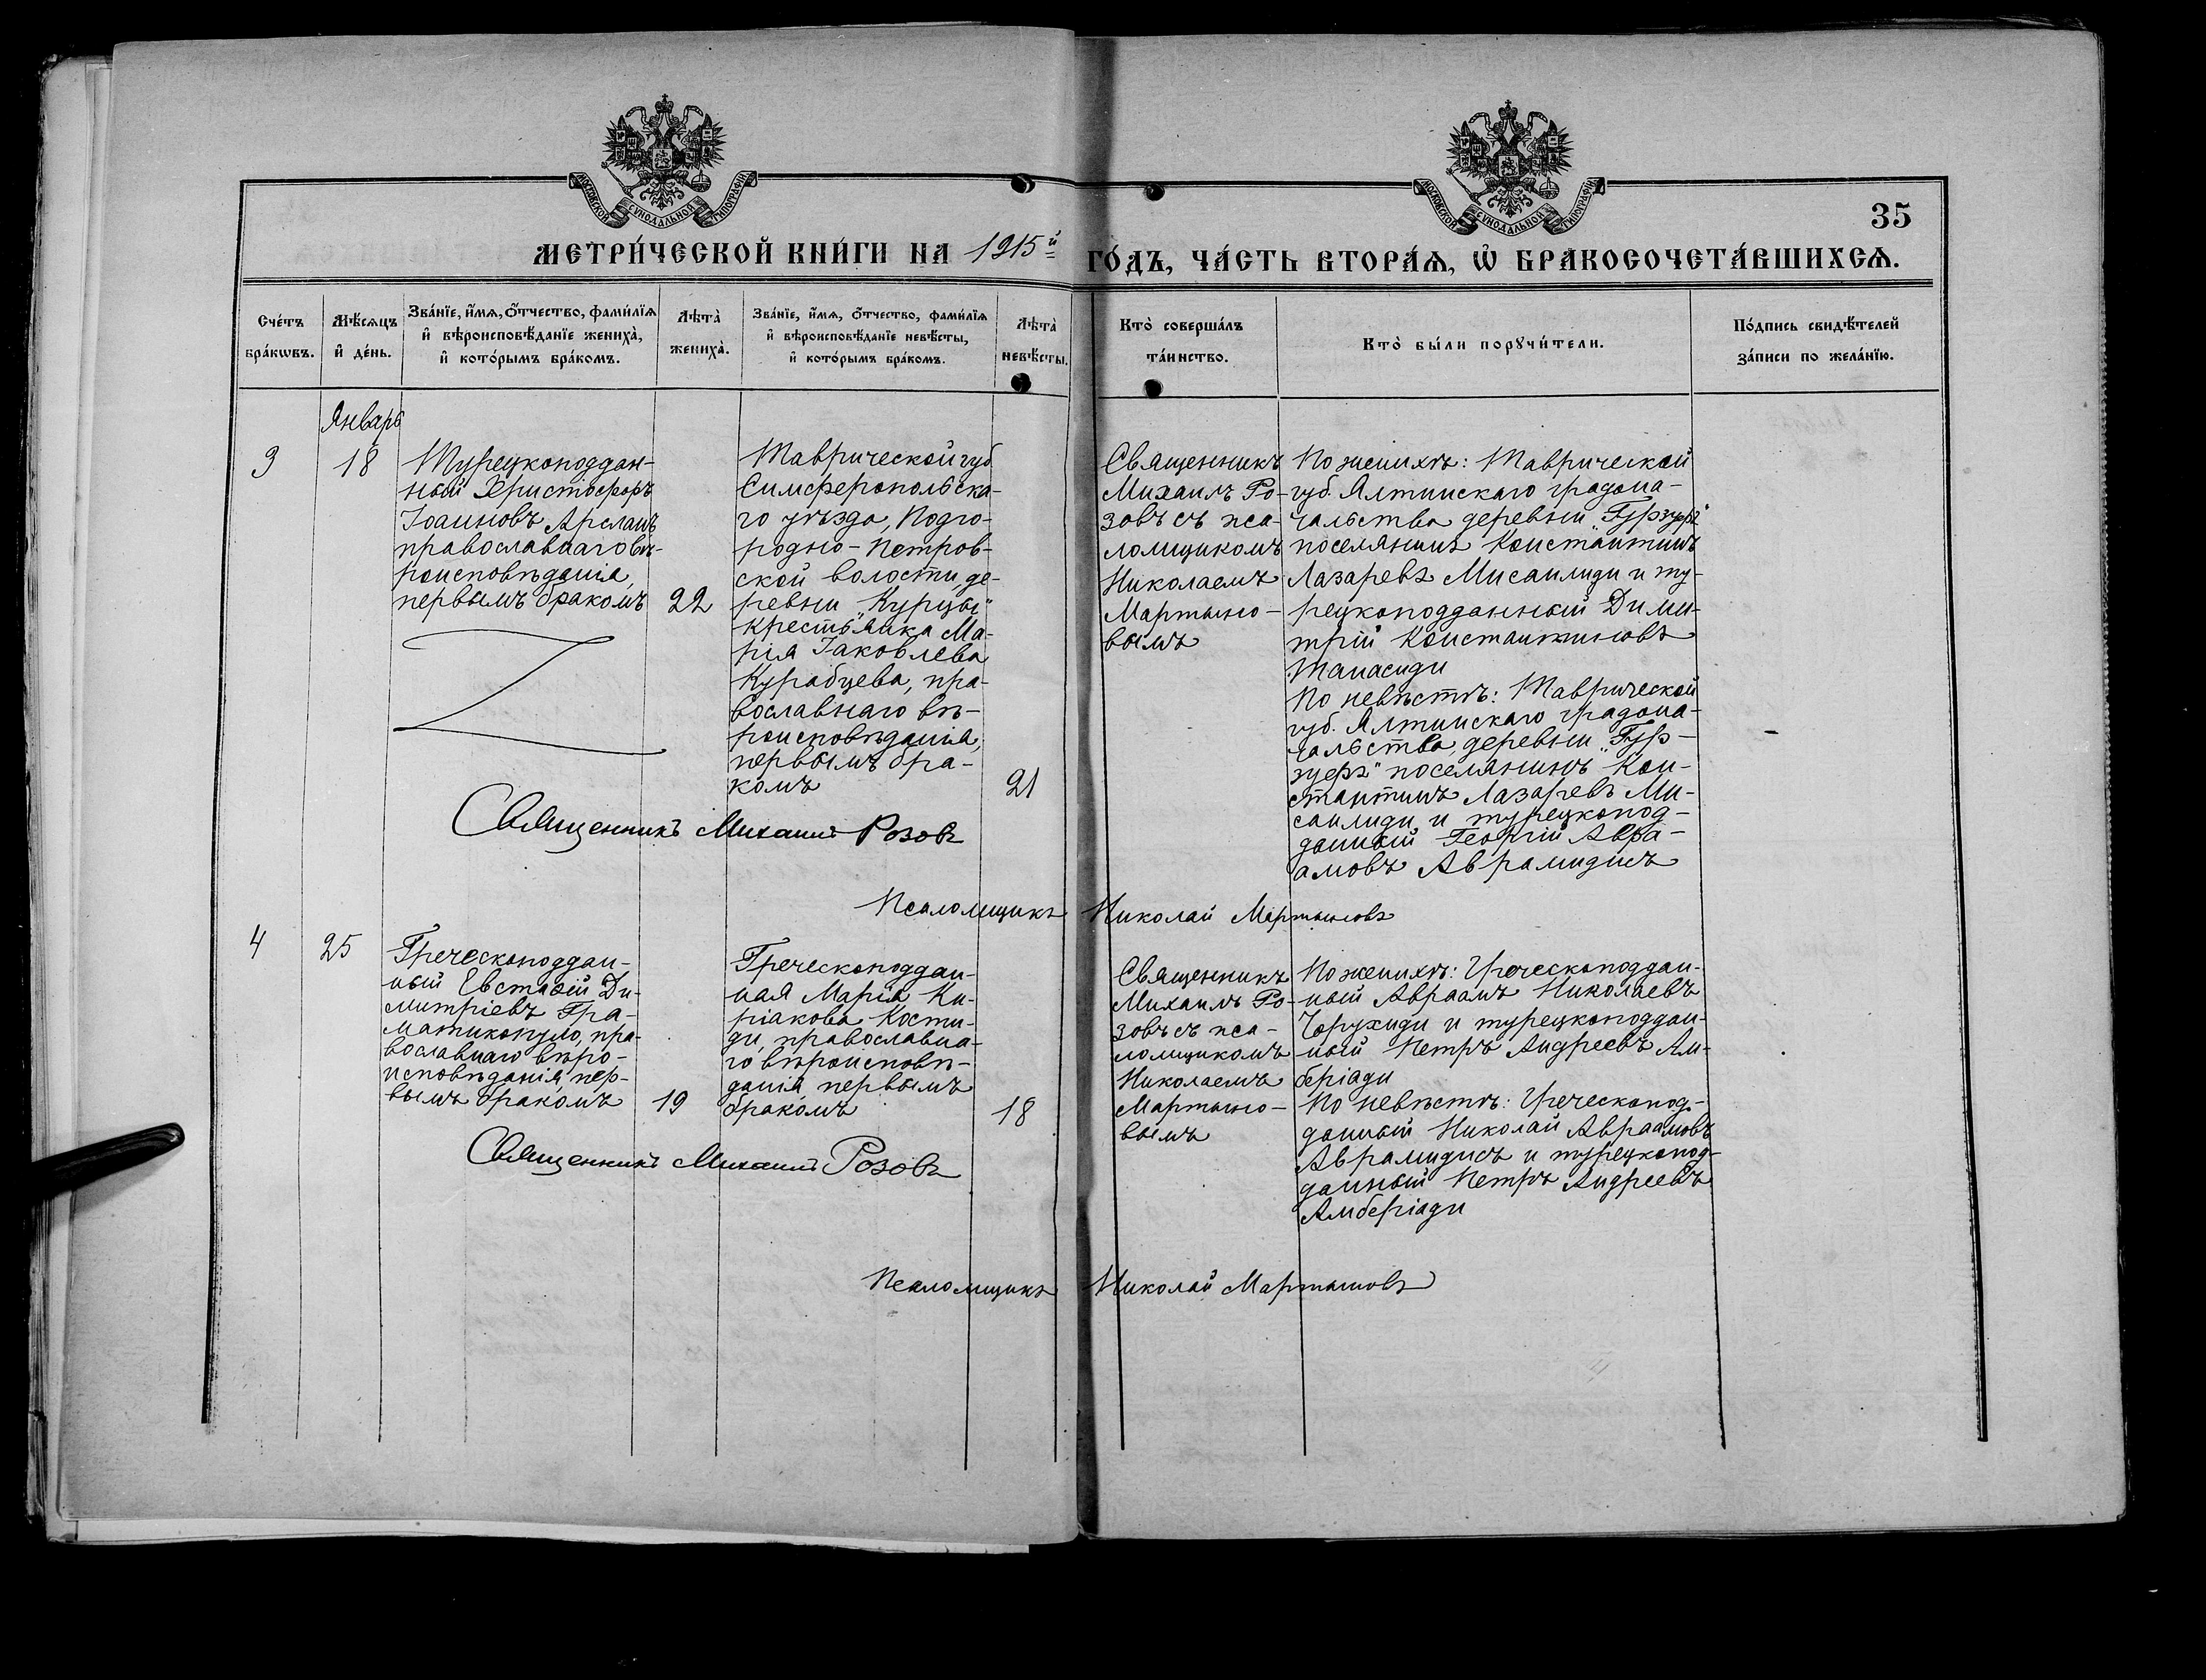 МОСКОВСКОЙ СУНОДАЛЬНОЙ ТИПОГРАФІИ
МОСКОВСКОЙ СУНОДАЛЬНОЙ ТИПОГРАФІИ
35
МЕТРИ́ЧЕСКОЙ КНИ́ГИ НА 1915й ГО́ДЪ, ЧА́СТЬ ВТОРА́Ѧ, Ѡ҆ БРАКОСОЧЕТА́ВШИХСѦ.
Сче́тъ
бра́кѡвъ.
Мѣ́сѧцъ
и҆ де́нь.
Зва́нїе, и҆́мѧ, ѻ҆́тчество, фами́лїѧ
и҆ вѣроисповѣ́данїе жениха̀,
и҆ кото́рымъ бра́комъ.
Лѣта̀
жениха̀.
Зва́нїе, и҆́мѧ, ѻ҆́тчество, фами́лїѧ
и҆ вѣроисповѣ́данїе невѣ́сты,
и҆ кото́рымъ бра́комъ.
Лѣта̀
невѣ́сты.
Кто̀ соверша́лъ
та́инство.
Кто̀ бы́ли порꙋчи́тели.
По́дпись свидѣ́телей
за́писи по жела́нїю.
Январь
3
18
Турецкоподдан-
ный Христофоръ
Іоанновъ Арсланъ
православнаго вѣ-
роисповѣданія,
первымъ бракомъ
22
Таврической губ
Симферопольска-
го уѣзда, Подго-
родно-Петров-
ской волости, де-
ревни „Курцы"
крестьянка Ма-
рія Іаковлева
Курабцева, пра-
вославнаго вѣ-
роисповѣданія,
первымъ бра-
комъ
21
Священникъ
Михаилъ Ро-
зовъ съ пса-
ломщикомъ
Николаемъ
Мартыно-
вымъ
По женихѣ: Таврической
губ. Ялтинскаго градона-
чальства деревни „Гурзуфъ"
поселянинъ Константинъ
Лазаревъ Мисаилиди и ту-
рецкоподданный Дими-
трій Константиновъ
Танасиди
По невѣстѣ: Таврической
губ. Ялтинскаго градона-
чальства, деревни „Гур-
зуфъ" поселянинъ Кон-
стантинъ Лазаревъ Ми-
саилиди и турецкопод-
данный Георгій Авра-
амовъ Аврамидисъ
Священникъ Михаилъ Розовъ
Псаломщикъ Николай Мартыновъ
4
25
Греческоподдан-
ный Евстафій Ди-
митріевъ Гра-
матикопуло, пра-
вославнаго вѣро-
исповѣданія, пер-
вымъ бракомъ
19
Греческоподдан-
ная Марія Ки-
ріакова Кости-
ди, православна-
го вѣроисповѣ-
данія, первымъ
бракомъ
18
Священникъ
Михаилъ Ро-
зовъ съ пса-
ломщикомъ
Николаемъ
Мартыно-
вымъ
По женихѣ: Греческоподдан-
ный Авраамъ Николаевъ
Чорухиди и турецкоподдан-
ный Петръ Андреевъ Ам-
беріади
По невѣстѣ: Греческопод-
данный Николай Авраамовъ
Аврамидисъ и турецкопод-
данный Петръ Андреевъ
Амберіади
Священникъ Михаилъ Розовъ
Псаломщикъ Николай Мартыновъ